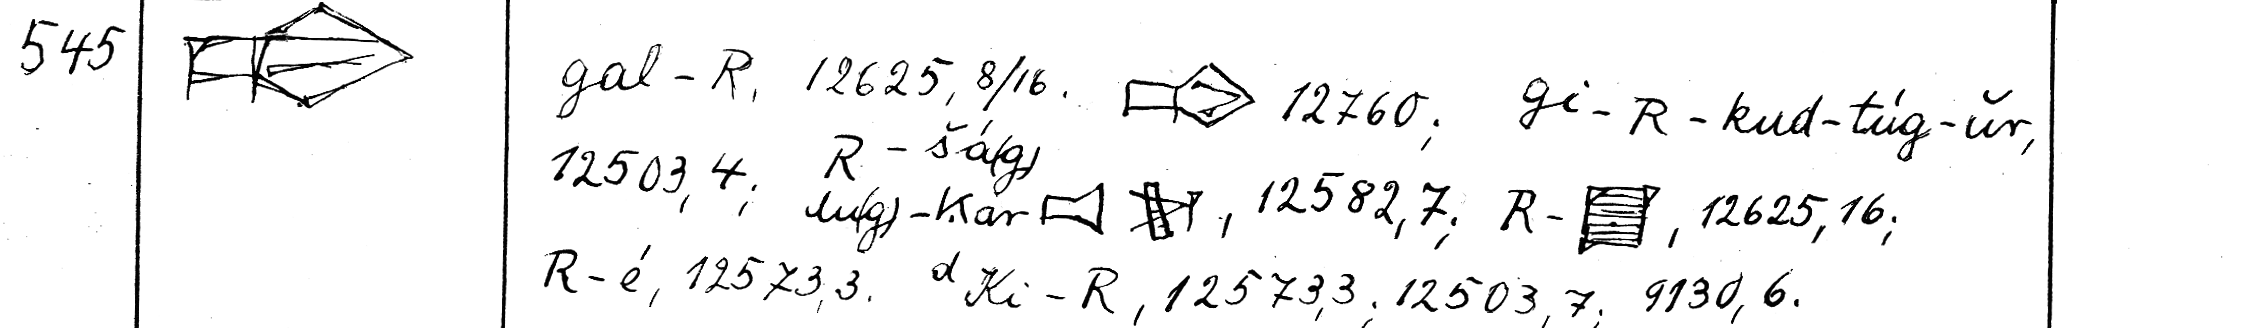 545
gal-R, 12625, 8/16. 12760; gi-R-kud-túg-ŭr,
12503, 4; R-šá(g)
lu(g)-kár , 12582, 7; R- , 12625, 16;
R-é, 12573,3. ᵈKi-R, 12573,3; 12503, 7; 9130, 6.